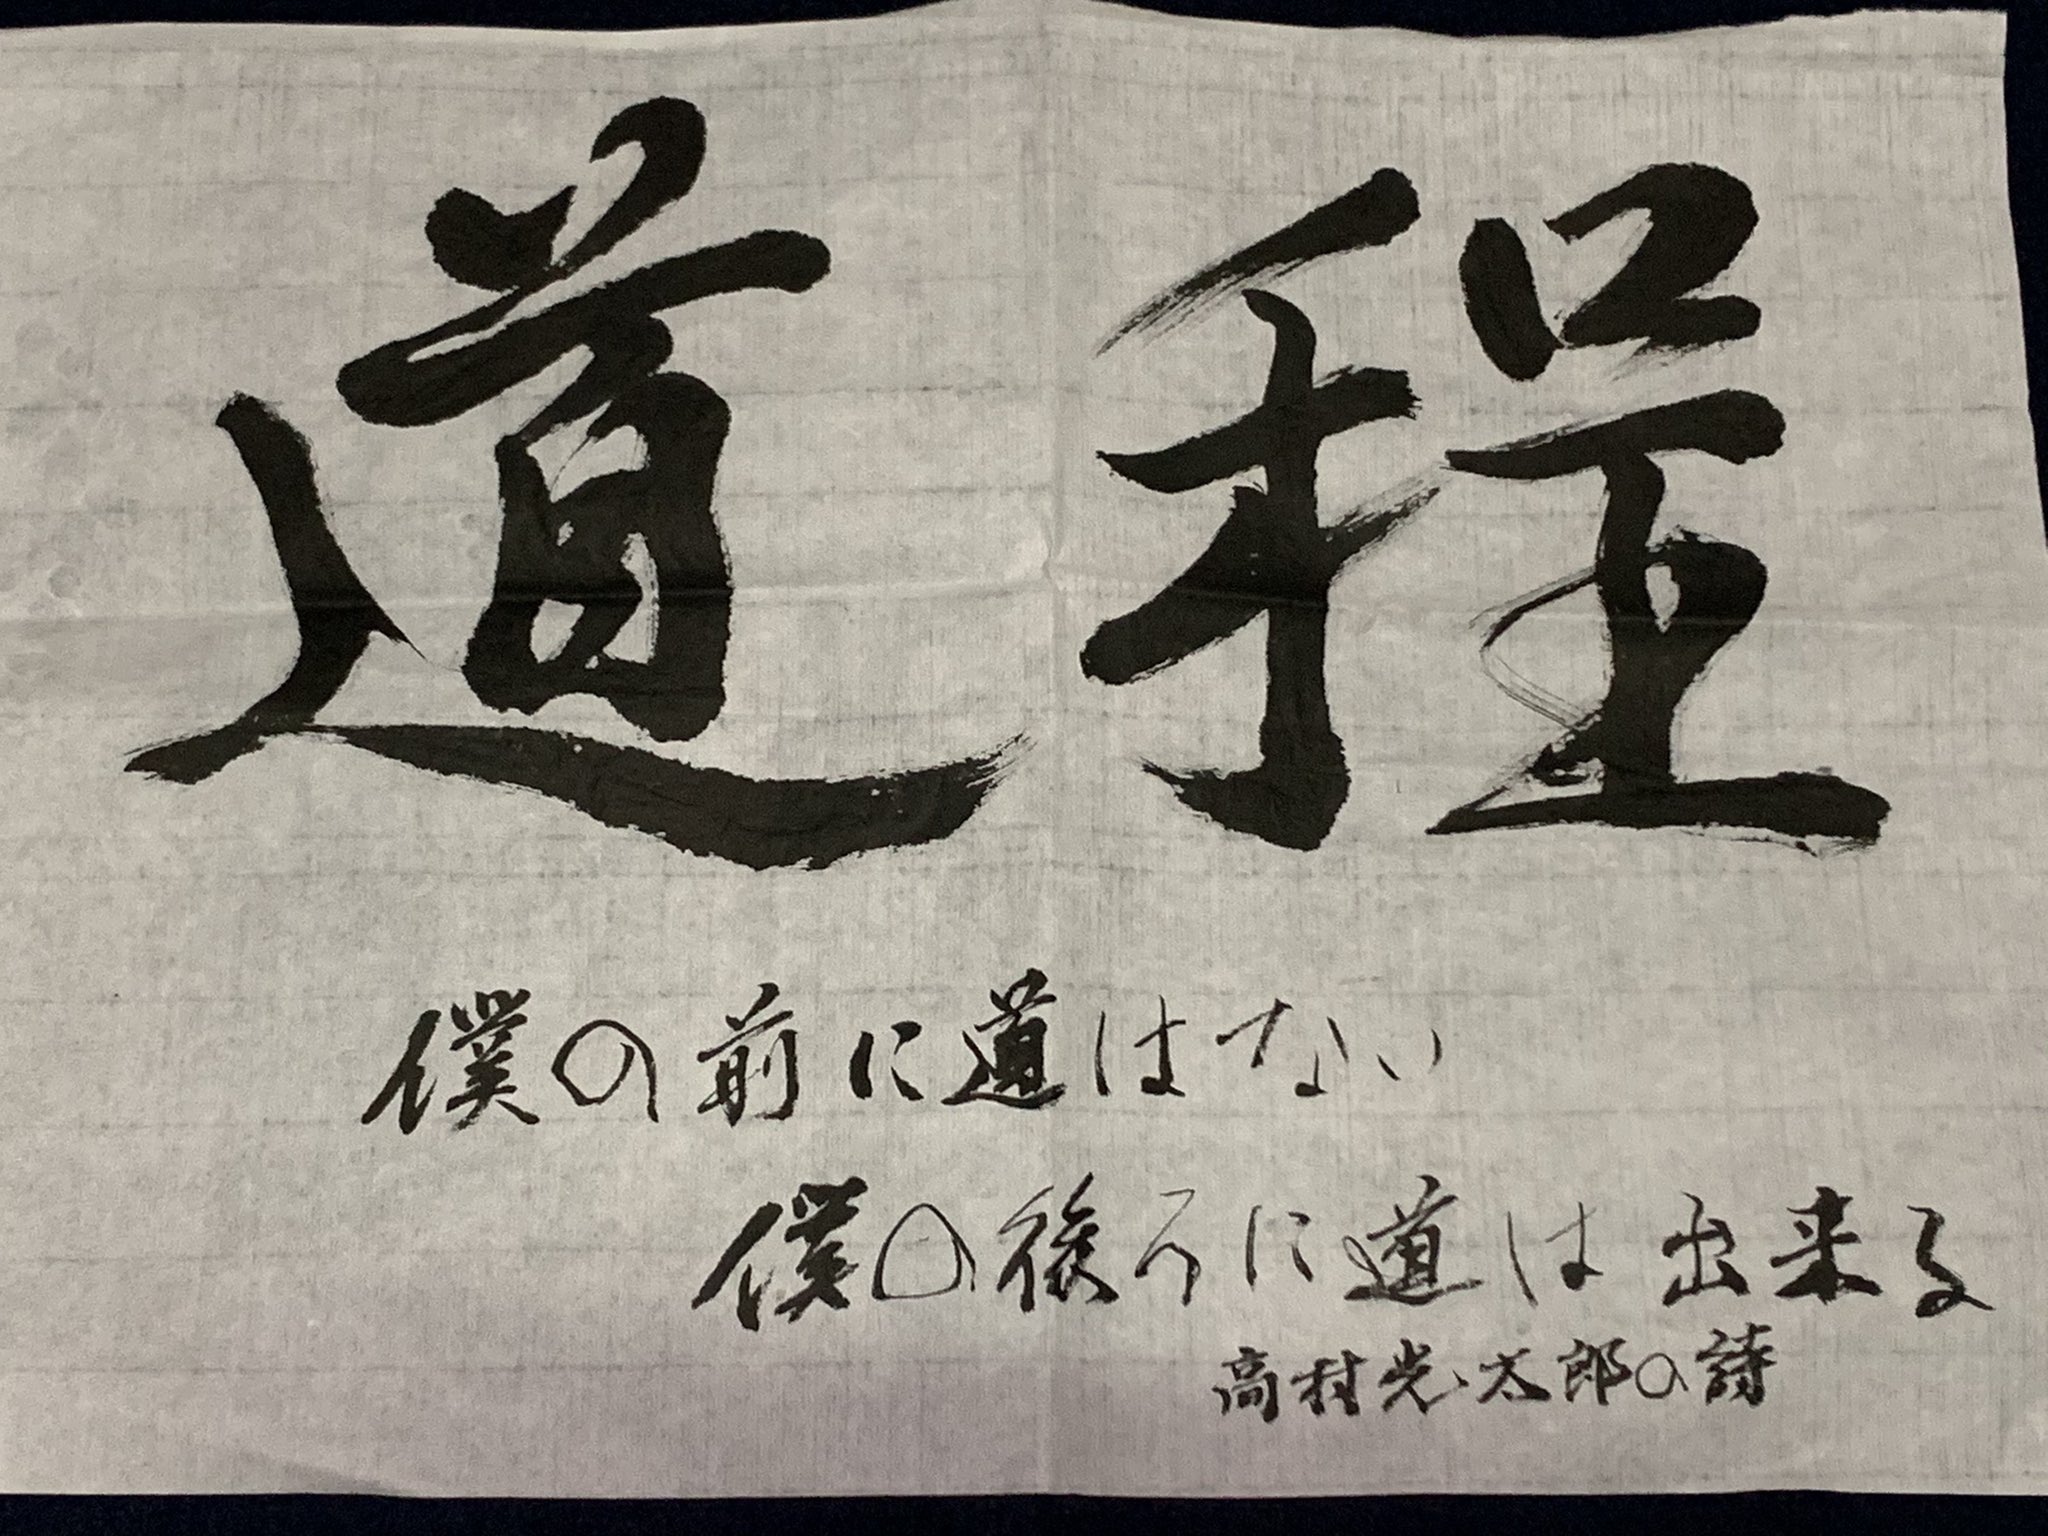 道程
僕の前に道はない
僕の後ろに道は出来る
高村光太郎の詩